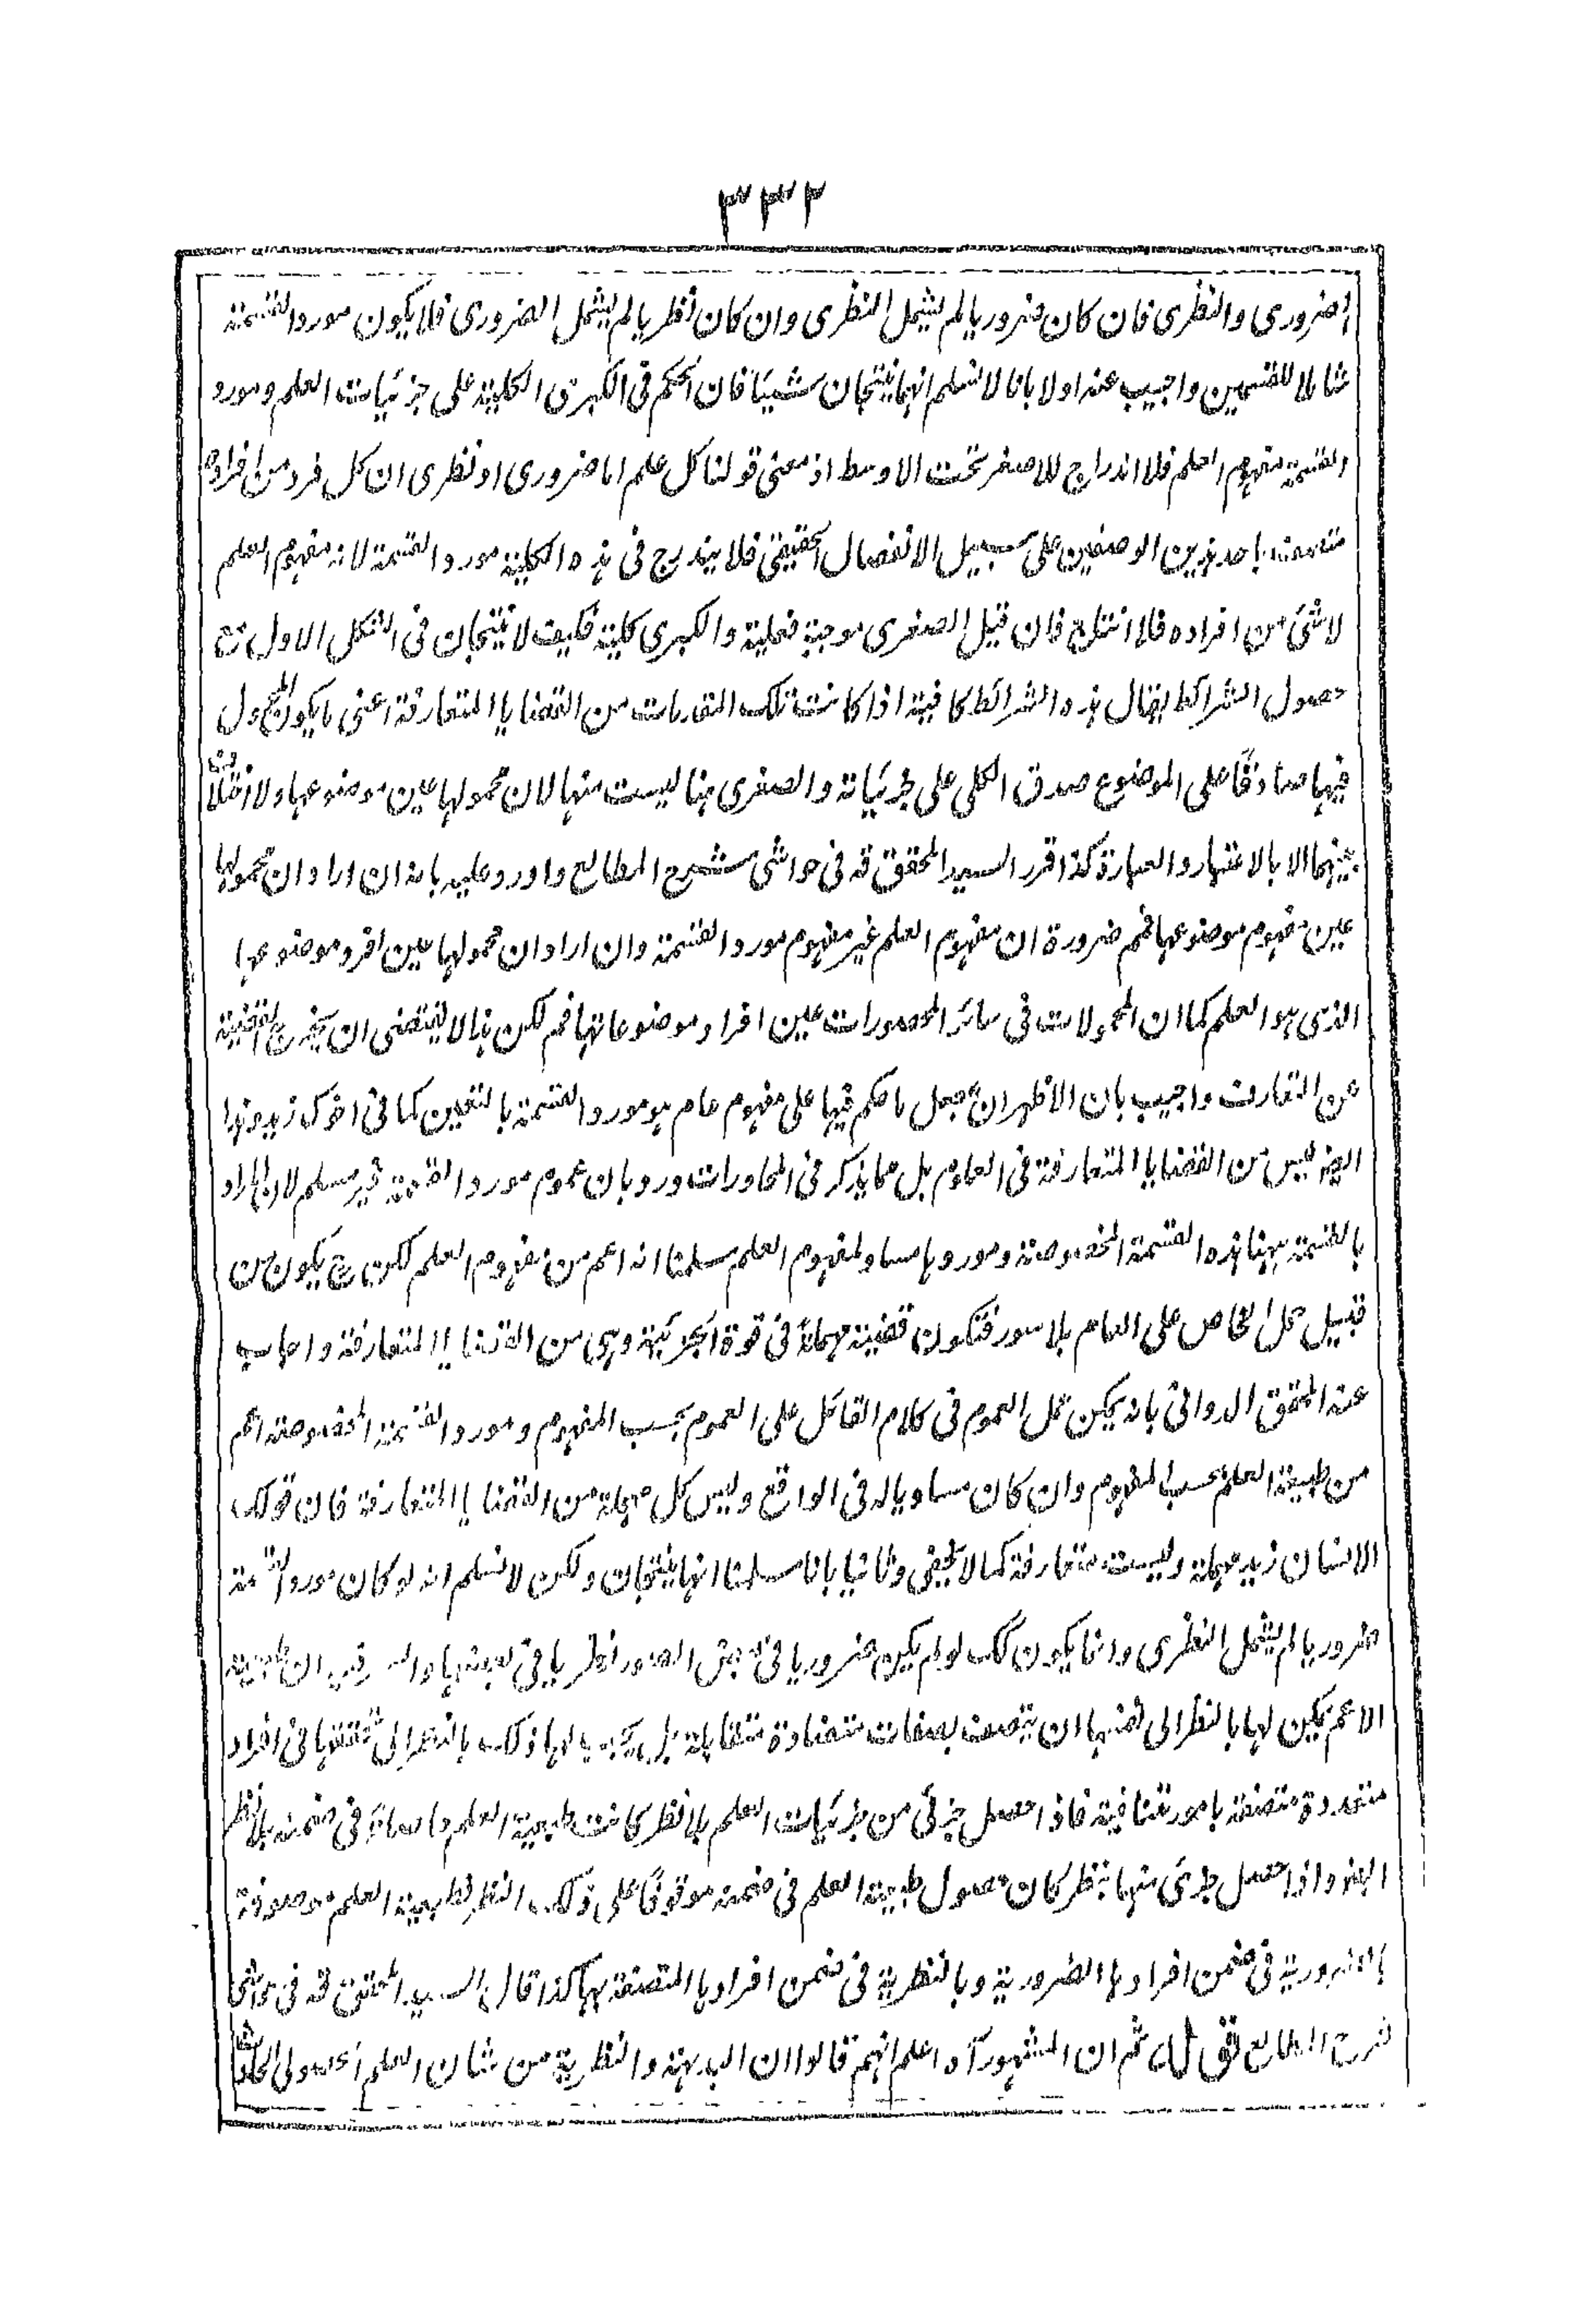 ٣٣٢
الضروري والنظرى فان كان ضروريا لم يشمل النظرى وان كان نظريا لم يشمل الضرورى فلا يكون مورد القسمة
شاملا للقسمين واجيب عنه اولا بانا لا نسلم انهما ينتجان شيئا فان الحكم فى الكبرى الكلية على جزئيات العلم ومورد
القسمة مفهوم العلم فلا اندراج للاصغر تحت الاوسط اذ معنى قولنا كل علم اما ضرورى او نظرى ان كل فرد من افراده
متصف باحد هذين الوصفين على سبيل الانفصال الحقيقي فلا يندرج فى هذه الكلية مورد القسمة لانه مفهوم العلم
لا شئ من افراده فلا انتاج فان قيل الصغرى موجبة فعلية والكبرى كلية فكيف لا ينتجان فى الشكل الاول مع
حصول الشرائط يقال هذه الشرائط كافية اذا كانت تلك المقدمات من القضايا المتعارفة اعنى ما يكون المحمول
فيها صادقا على الموضوع صدق الكلى على جزئياته والصغرى هنا ليست منها لان محمولها عين موضوعها ولا اختلاف
بينهما الا بالاعتبار والعبارة كذا قرر السيد المحقق قه فى حواشى شرح المطالع واورد عليه بانه ان اراد ان محمولها
عين مفهوم موضوعها فمم ضرورة ان مفهوم العلم غير مفهوم مورد القسمة وان اراد ان محمولها عين افرد موضوعها
الذى هو العلم كما ان المحمولات فى سائر المحصورات عين افراد موضوعاتها فمم لكن هذا لا يقتضى ان يخرج القضية
عن التعارف واجيب بان الاظهر ان يجعل ما حكم فيها على مفهوم عام هو مورد القسمة بالتعين كما فى اخوك زيد وهذا
ايضا ليس من القضايا المتعارفة فى العلوم بل مما يذكر فى المحاورات ورد بان عموم مورد القسمة غير مسلم لان المراد
بالقسمة ههنا هذه القسمة المخصوصة وموردها مساو لمفهوم العلم سلمنا انه اعم من مفهوم العلم لكن ح يكون من
قبيل حمل الخاص على العام بلا سور فتكون قضية مهملة فى قوة الجزئية وهى من القضايا المتعارفة واجاب
عنه المحقق الدوانى بانه يمكن حمل العموم فى كلام القائل على العموم بحسب المفهوم ومورد القسمة المخصوصة اعم
من طبيعة العلم بحسب المفهوم وان كان مساويا له فى الواقع وليس كل مهملة من القضايا المتعارفة فان قولك
الانسان زيد مهملة وليست متعارفة كما لا يخفى وثانيا بانا سلمنا انها ينتجان ولكن لا نسلم انه لو كان مورد القسمة
ضروريا لم يشمل النظرى وانما يكون كك لو لم يكن ضروريا فى بعض الصور نظريا فى بعضها والسر فيه ان طبيعة
الاعم يمكن لها بالنظر الى نفسها ان يتصف بصفات متضادة متقابلة بل يجب لها ذلك بالنظر الى تحققها فى افراد
متعددة متصفة بامور متنافية فاذا حصل جزئى من جزئيات العلم بلا نظر كانت طبيعة العلم حاصلة فى ضمنه بلا نظر
ايضا واذا حصل جزئى منها بنظر كان حصول طبيعة العلم فى ضمنه موقوفا على ذلك النظر فطبيعة العلم موصوفة
بالضرورية فى ضمن افرادها الضرورية وبالنظرية فى ضمن افرادها المتصفة بها كذا قال السيد المحقق قه فى حواشى
شرح المطالع قوله ثم ان المشهور آه اعلم انهم قالوا ان البديهة والنظرية من شان العلم الحصولى الحادث